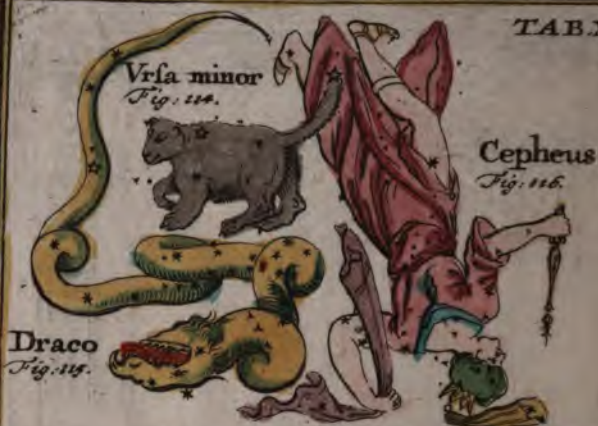 TAB.
Vrſa minor
Fig: 114.
Cepheus
Fig: 116.
Draco
Fig: 115.